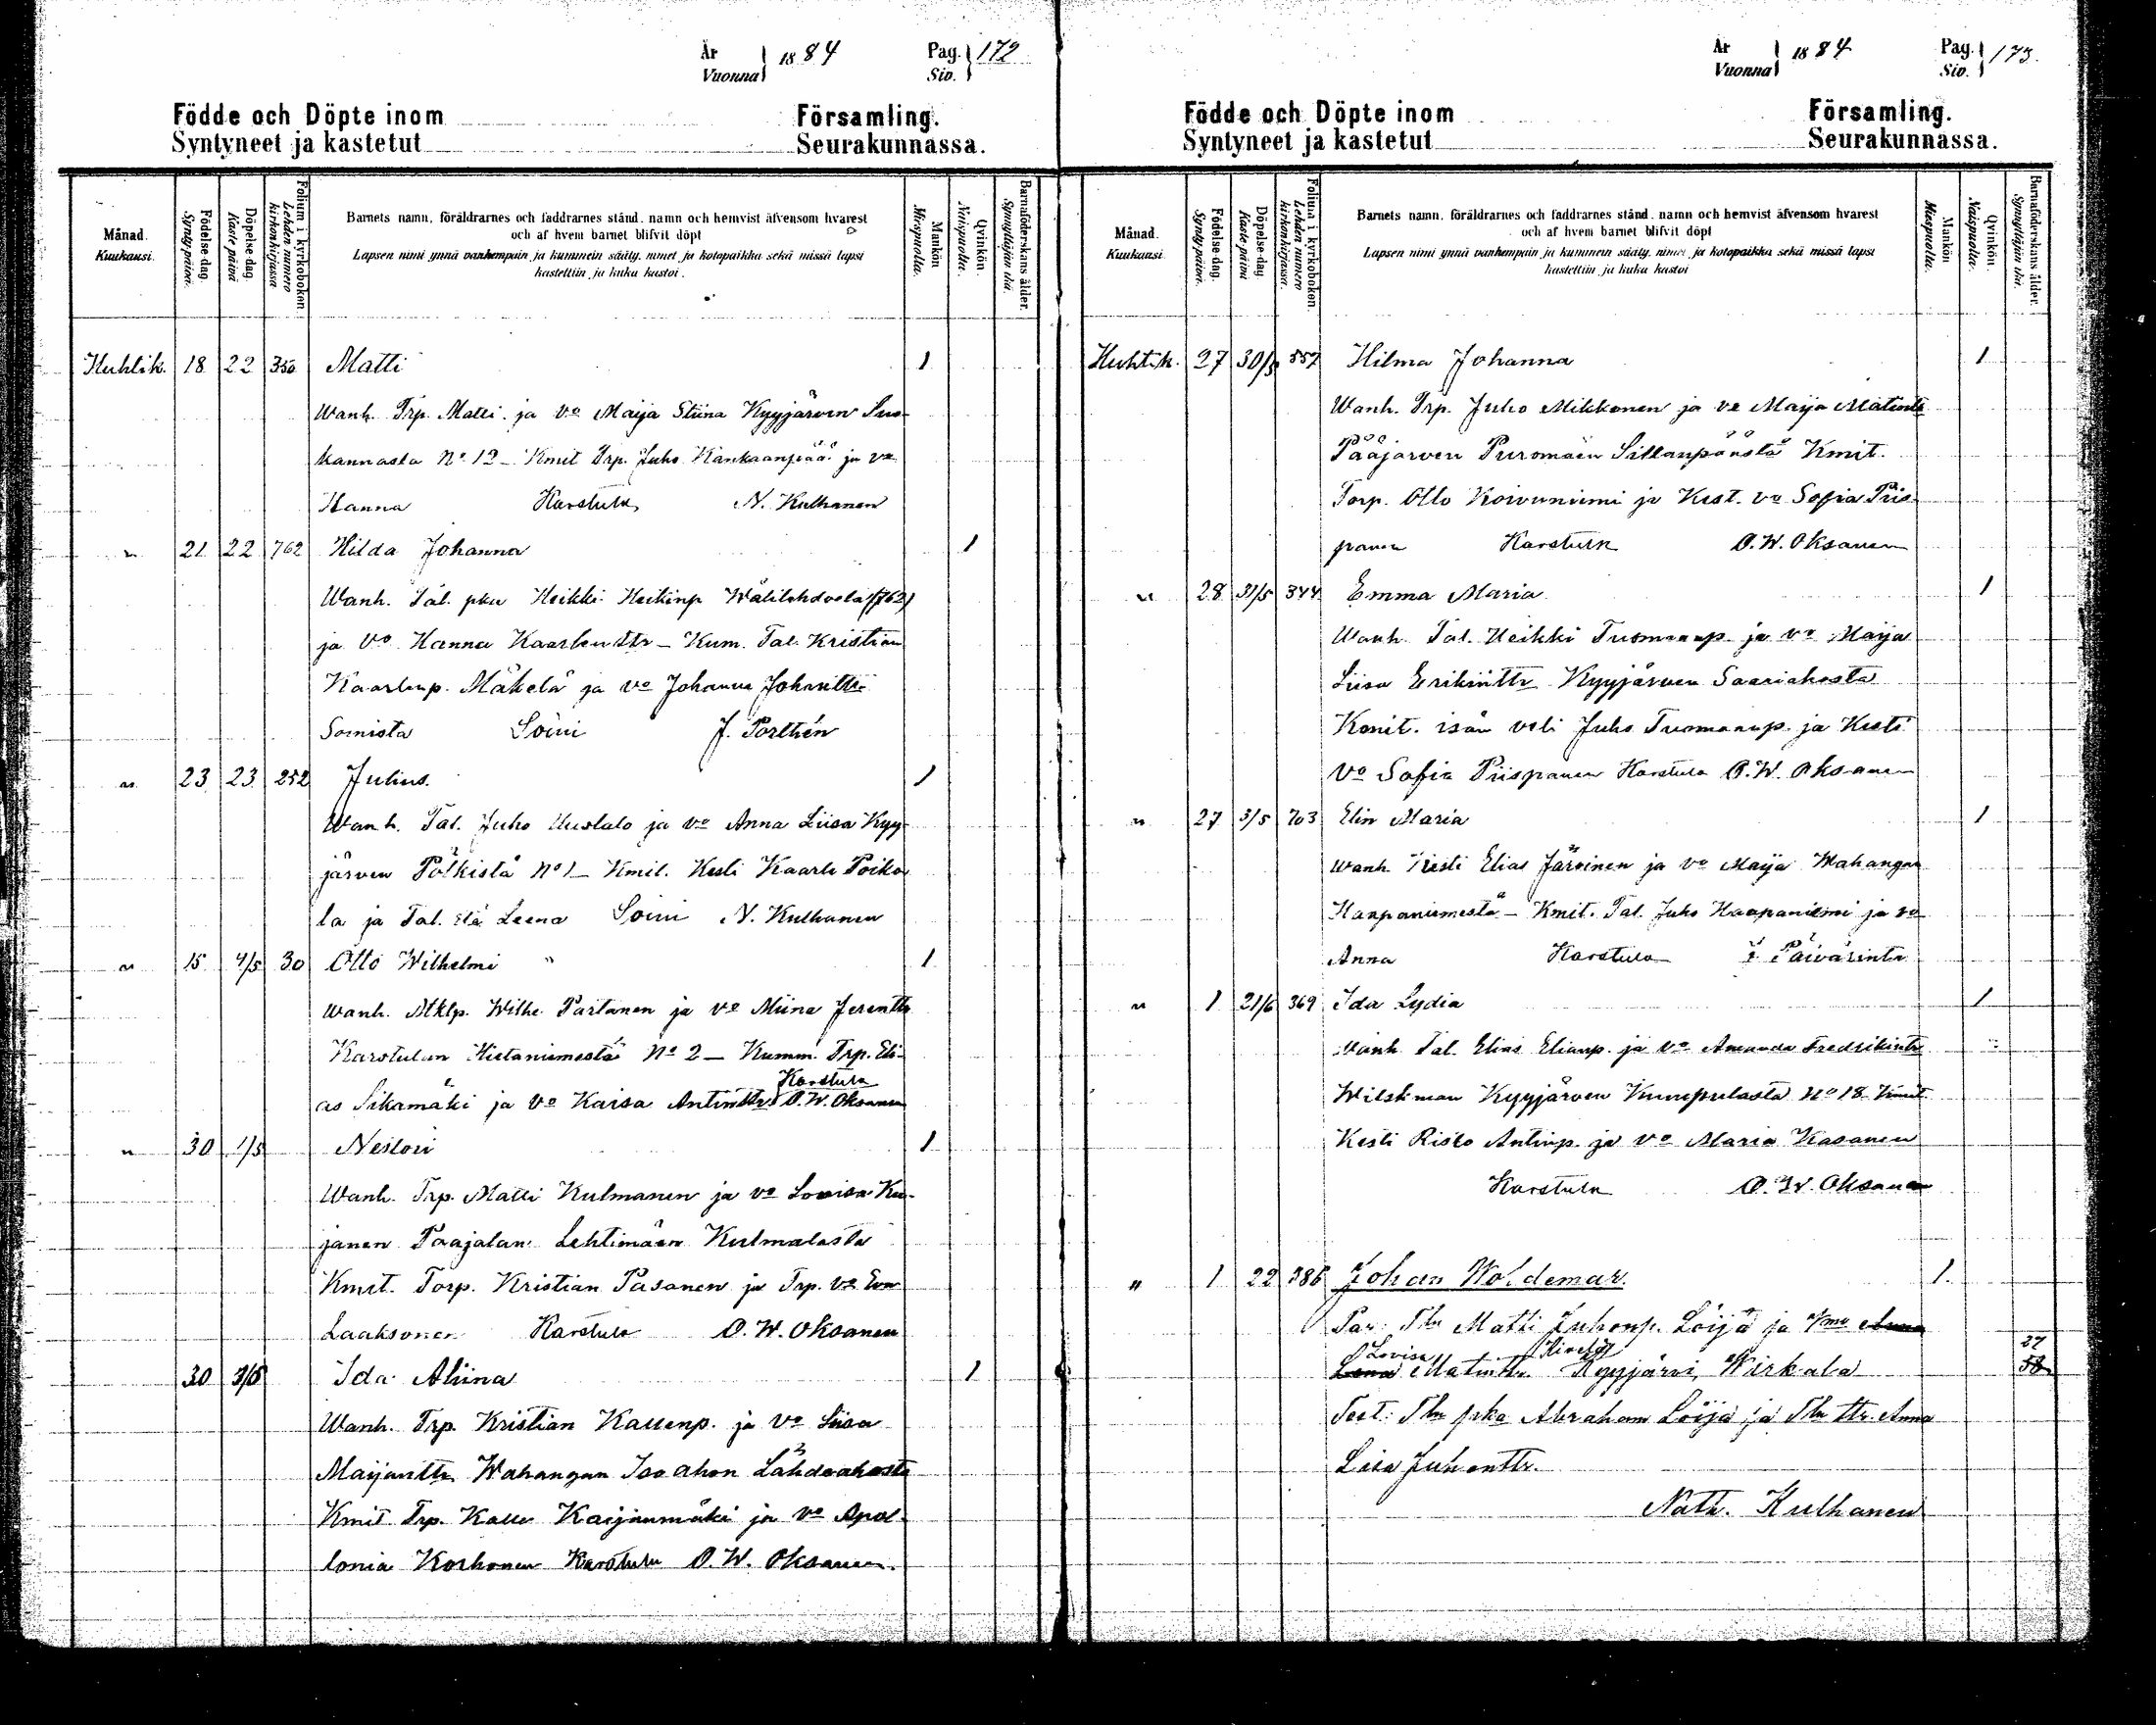 År
Vuonna
1884
Pag.
Siv.
172
Födde och Döpte inom Församling.
Syntyneet ja kastetut Seurakunnassa.
Månad.
Kuukausi.
Födelse dag.
Synty päivä.
Döpelse dag.
Kaste päivä
Folium i kyrkoboken.
Lehden numero kirkonkirjassa
Barnets namn, föräldrarnes och faddrarnes stånd, namn och hemvist äfvensom hvarest
och af hvem barnet blifvit döpt
Lapsen nimi ynnä vanhempain ja kummein sääty, nimet ja kotopaikka sekä missä lapsi
kastettiin ja kuka kastoi.
Mankön
Miespuolta.
Qvinkön.
Naispuolta.
Barnaföderskans ålder.
Synnyttäjän ikä.
Huhtik. 18 22 350 Matti 1
Wanh. Trp. Matti ja vo Maija Stiina Kyyjärven Suo-
kannasta No 12 - Kmit Trp. Juho Kankaanpää ja vo
Hanna Karstula N. Kulhanen
" 21 22 762 Hilda Johanna 1
Wanh. Tal. pka Heikki Heikinp Wälilehdosta (762)
ja vo Hanna Kaarlenttr - Kum. Tal. Kristian
Kaarlenp. Mäkelä ja vo Johanna Johanittr
Soinista Soini J. Porthén
" 23 23 252 Julius. 1
Wanh. Tal. Juho Uusitalo ja vo Anna Liisa Kyy-
järven Pölkistä No 1 - Kmit. Kesti Kaarle Poiko-
la ja Tal. Leena Soini N. Kulhanen
" 15 4/5 30 Otto Wilhelmi 1
Wanh. Mklp. Wilhe. Partanen ja vo Miina
Karstulan Hietaniemestä No 2 - Kumm. Trp. Eli-
as Sikamäki ja vo Kaisa Antinttr. Karstula O. W. Oksanen
" 30 1/5 Nestori 1
Wanh. Trp. Matti Kulmanen ja vo Lovisa Ku-
janen Paajalan Lehtimäen Kulmalasta
Kmit. Torp. Kristian Pasanen ja Trp. vo Eva
Laaksonen Karstula O. W. Oksanen
30 3/5 Ida Alina 1
Wanh. Trp. Kristian Kallenp. ja vo Liisa
Maijanttr Wahangan Isoahon Lähdeahosta
Kmit Trp. Kalle Karjanmäki ja vo Apol-
lonia Korhonen Karstula O. W. Oksanen.
År
Vuonna
1884
Pag.
Siv.
173.
Födde och Döpte inom Församling.
Syntyneet ja kastetut Seurakunnassa.
Månad.
Kuukausi
Födelse-dag.
Synty päivä.
Döpelse-dag
Kaste-päivä
Folium i kyrkoboken
Lehden numero kirkonkirjassa.
Barnets namn, föräldrarnes och faddrarnes stånd, namn och hemvist äfvensom hvarest
och af hvem barnet blifvit döpt
Lapsen nimi ynnä vanhempain ja kummein sääty, nimet ja kotopaikka sekä missä lapsi
kastettiin ja kuka kastoi
Mankön
Miespuolta.
Qvinkön.
Naispuolta.
Barnaföderskans ålder.
Synnyttäjän ikä.
Huhtik. 27 30/5 557 Hilma Johanna 1
Wanh. Trp. Juho Mikkonen ja vo Maija Matintr
Pääjärven Puromäen Sillanpäästä Kmit.
Torp. Otto Koivuniemi ja Kest. vo Sofia Piis-
panen Karstula O. W. Oksanen
" 28 31/5 344 Emma Maria 1
Wanh. Tal. Heikki Tuomaanp. ja vo Maija
Liisa Erikinttr Kyyjärven Saariahosta
Kmit. isän veli Juho Tuomaanp. ja Kesti
vo Sofia Piispanen Karstula O. W. Oksanen
" 27 3/5 703 Elin Maria 1
Wanh. Kesti Elias Järvinen ja vo Maija Wahangan
Haapaniemestä - Kmit. Tal. Juho Haapaniemi ja vo
Anna Karstula Päivärinta
" 1 21/6 369 Ida Lydia 1
Wanh Tal. Elias Elianp. ja vo Amanda Fredrikintr
Wilskman Kyyjärven Kumpulasta No 18 Kmit
Kesti Risto Antinp. ja vo Maria Kasanen
Karstula O. W. Oksanen
" 1 22 386 Johan Woldemar. 1.
Par: Tln Matti Juhonp. Löijä ja Anna
Lovisa Hirvelä 27
Lena Matinttr. Kyyjärvi, Wirkala 58
Test: Tln pka Abraham Löijä ja Tln ttr. Anna
Lisa Juhonttr.
Nath. Kulhanen